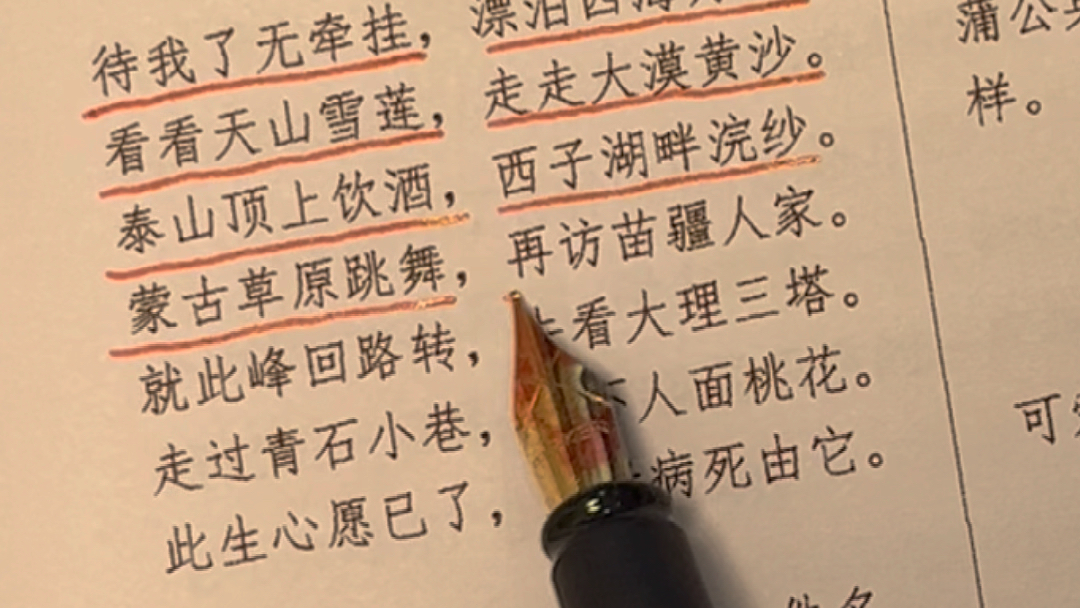 待我了无牵挂，漂泊四海
看看天山雪莲，走走大漠黄沙。
泰山顶上饮酒，西子湖畔浣纱。
蒙古草原跳舞，再访苗疆人家。
就此峰回路转，看大理三塔。
走过青石小巷，人面桃花。
此生心愿已了，病死由它。
蒲公
样。
可